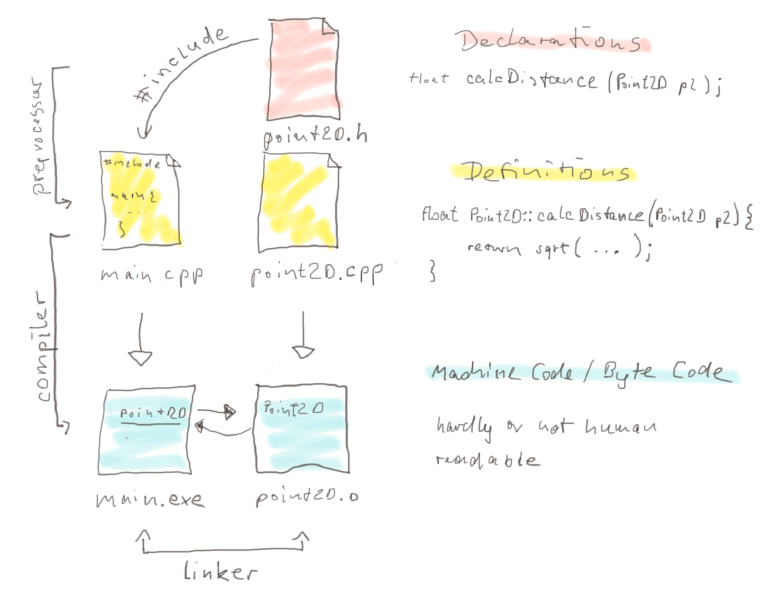 #include
Declarations
float calcDistance (Point2D p2);
point2D.h
preprocessor
#include
main{
...
}
main.cpp
point2D.cpp
Definitions
float Point2D::calcDistance(Point2D p2){
return sqrt( ... );
}
compiler
Machine Code / Byte Code
Point2D
Point2D
hardly or not human
readable
main.exe
point2D.o
linker